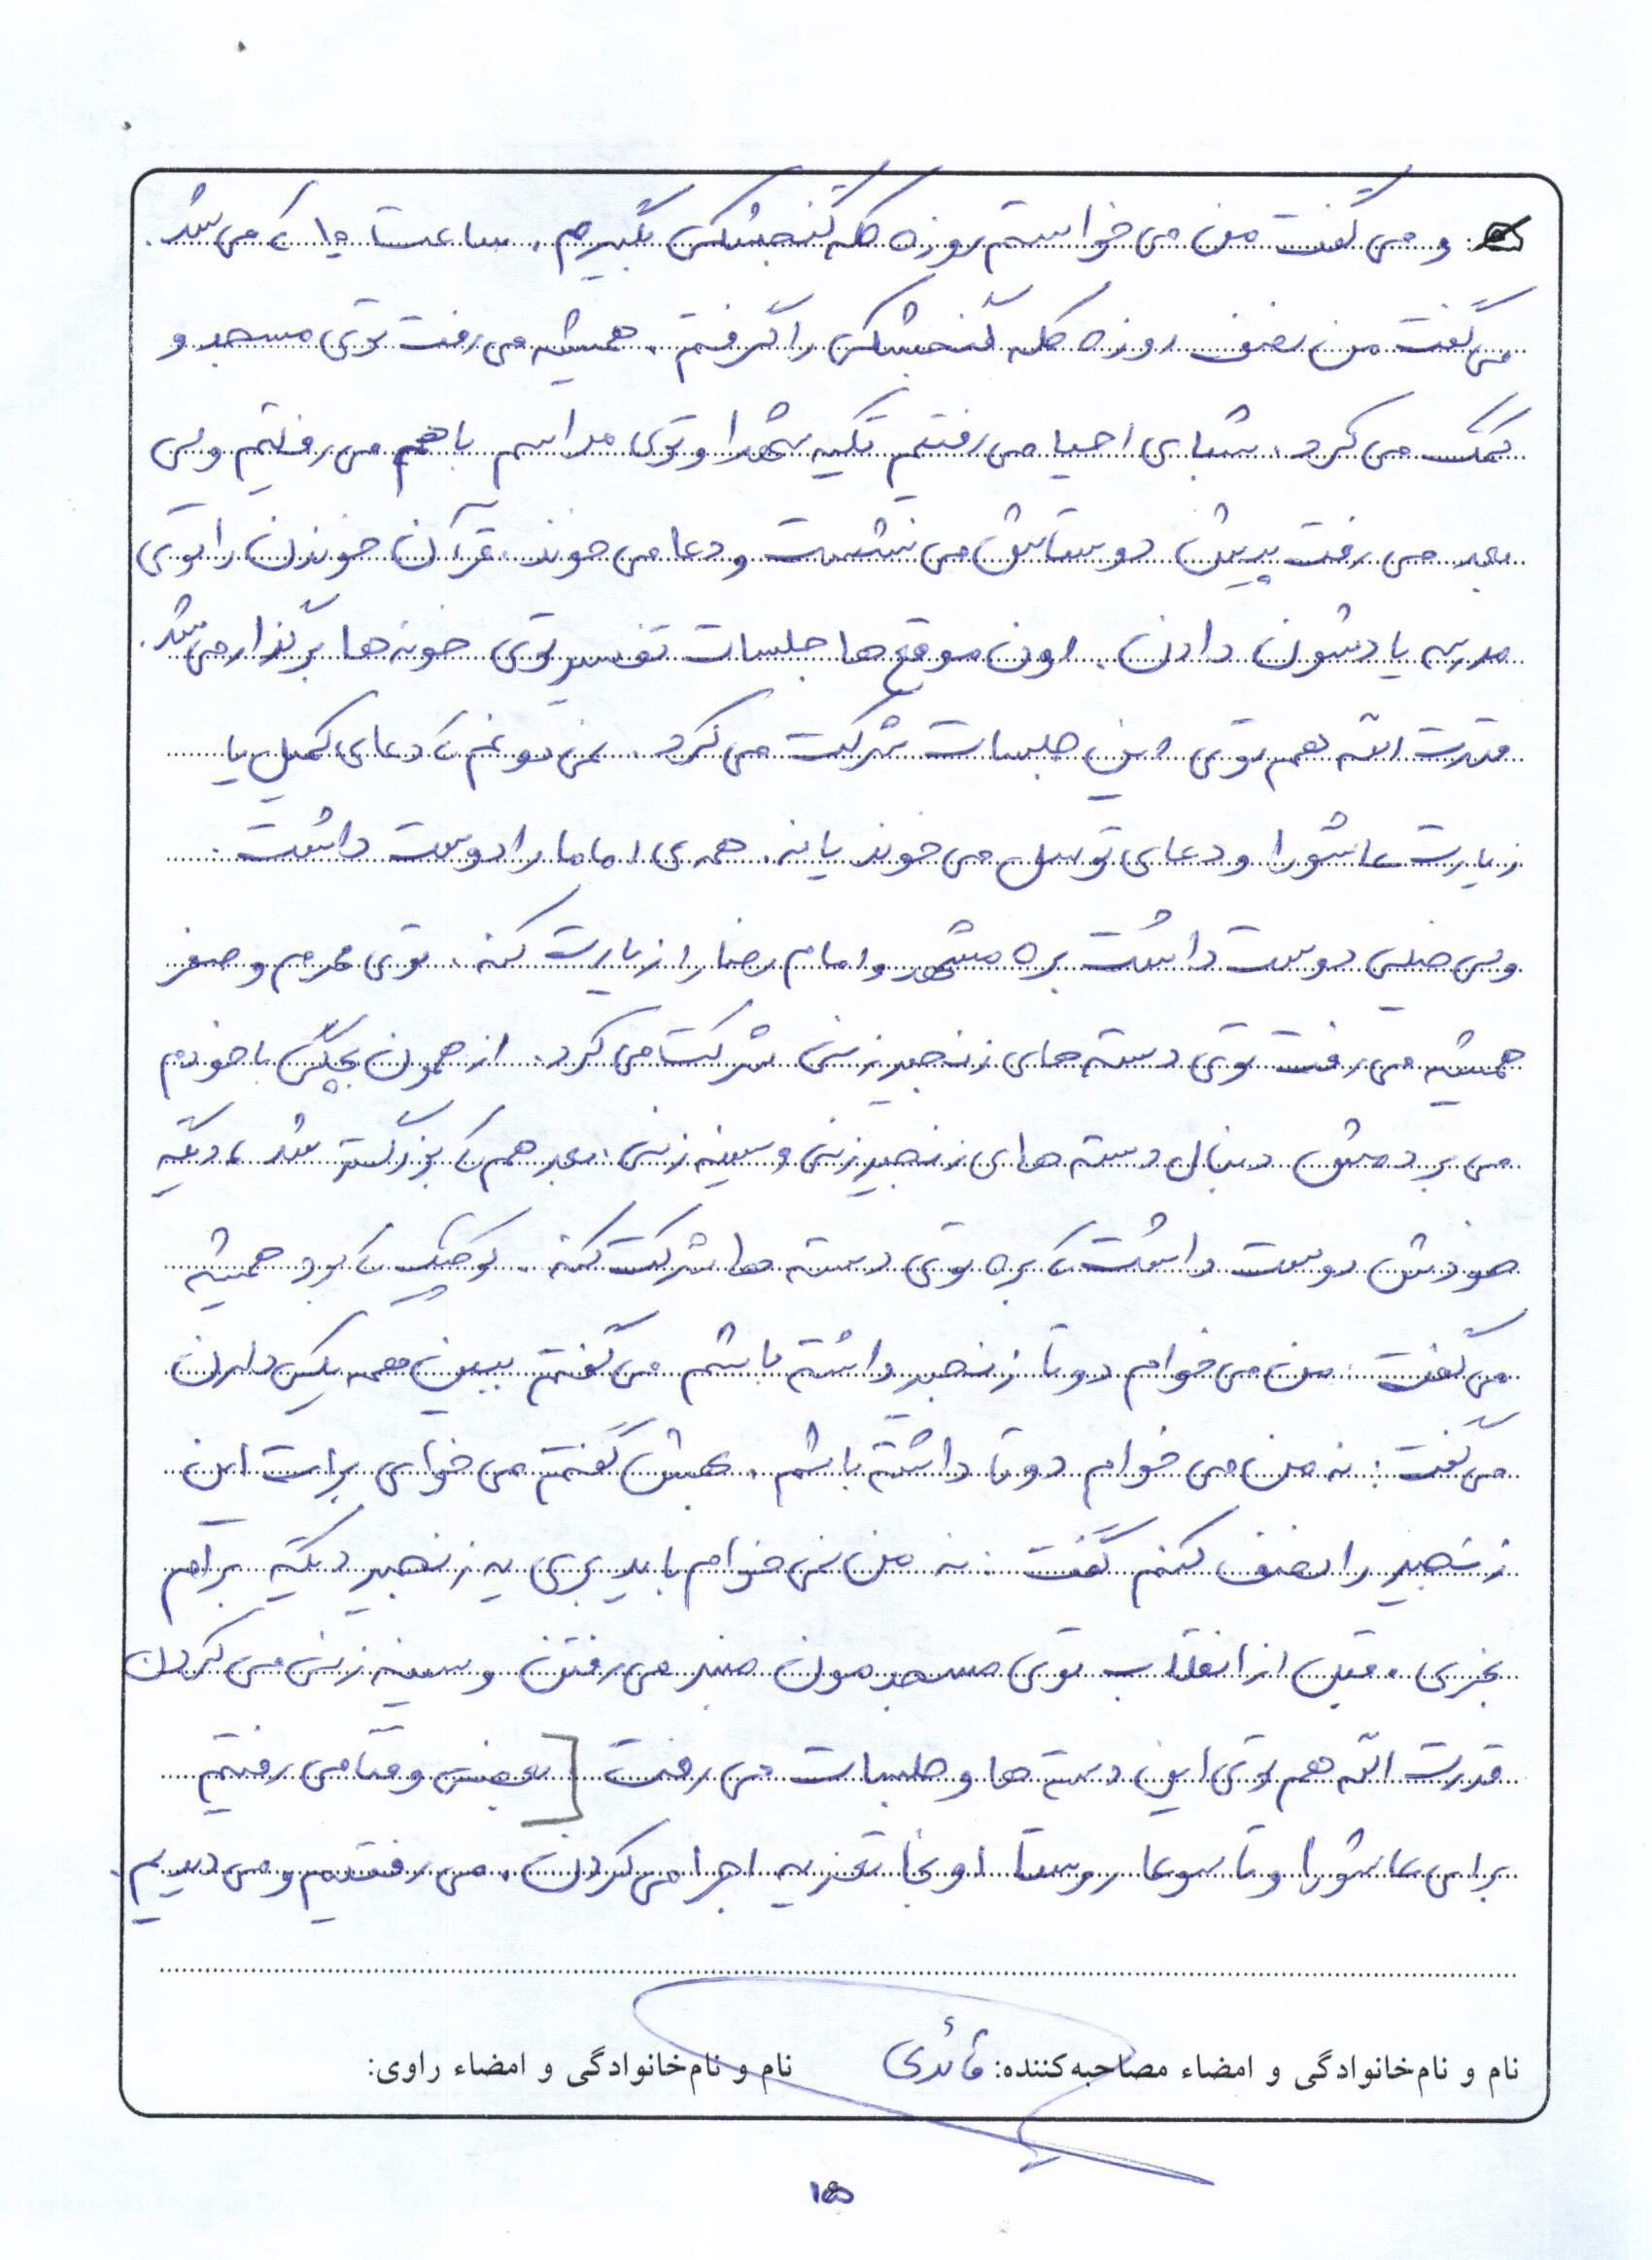 و می گفت من می خواستم روزه کله گنجشکی بگیرم. ساعت ۱۰ که می شد.
می گفت من نصف روزه کله گنجشکی را گرفتم. همیشه می رفت توی مسجد و
کمک می کرد. شبای احیا می رفتیم تکیه شهدا و توی مراسم با هم می رفتیم ولی
بعد می رفت پیش دوستاش می نشست و دعا می خوند. قرآن خوندن را توی
مدرسه یادشون دادن. اون موقع ها جلسات تفسیر توی خونه ها برگزار می شد.
قدرت الله هم توی این جلسات شرکت می کرد. نمی دونم که دعای کمیل یا
زیارت عاشورا و دعای توسل می خوند یا نه. همه ی اماما را دوست داشت.
ولی خیلی دوست داشت بره مشهد و امام رضا را زیارت کنه. توی محرم و صفر
همیشه می رفت توی دسته های زنجیرزنی شرکت می کرد. از همون بچگی با خودم
می بردمش دنبال دسته های زنجیرزنی و سینه زنی. بعد هم که بزرگتر شد، دیگه
خودش دوست داشت که بره توی دسته ها شرکت کنه. کوچیک که بود همیشه
می گفت: من می خوام دو تا زنجیر داشته باشم می گفتم ببین همه یکی دارن
می گفت: نه من می خوام دو تا داشته باشم. بهش گفتم می خوای برات این
زنجیر را نصف کنم گفت: نه من نمی خوام باید بری یه زنجیر دیگه برام
بخری. قبل از انقلاب توی مسجدمون منبر می رفتن و سینه زنی می کردن
قدرت الله هم توی این دسته ها و جلسات می رفت [بعضی وقتا می رفتیم
برای عاشورا و تاسوعا روستا اونجا تعزیه اجرا می کردن. می رفتیم و می دیدیم.
نام و نام‌خانوادگی و امضاء مصاحبه‌کننده: قائدی نام و نام‌خانوادگی و امضاء راوی: